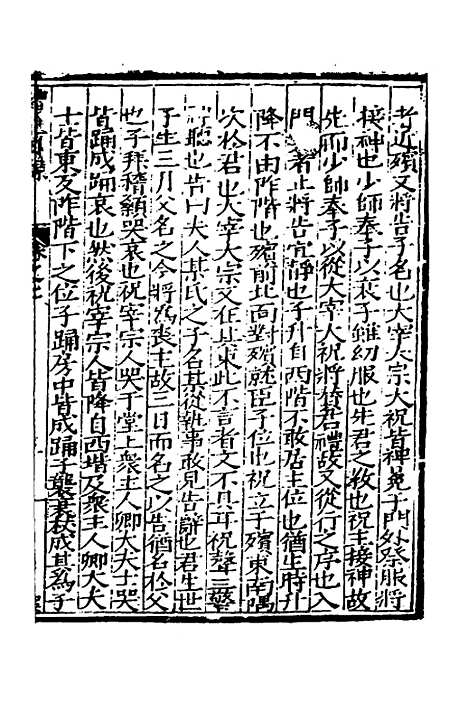 者近殯又將告子名也大宰大宗大祝皆裨冕于門外祭服將
接神也少師奉子以衰子雖幼服也先君之教也祝主接神故
先而少師奉子以從大宰大祝將替君禮故又從行之序也入
門 者止將告宜靜也子升自西階不敢居主位也猶生時升
降不由阼階也殯前北面對殯就臣子位也祝立于殯東南隅
次於君也大宰大宗又在其東此不言者文不具耳祝聲三警
 聽也告曰夫人某氏之子名某從執事敢見告辭也君生世
子生三月父名之今將爲喪主故三日而名之以告猶名於父
也子拜稽顙哭哀也祝宰宗人哭于堂上衆主人卿大夫士哭
皆踊成踊哀也然後祝宰宗人皆降自西階及衆主人卿大夫
士皆東反阼階下之位子踊房中皆成踊子襲衰杖成其爲子